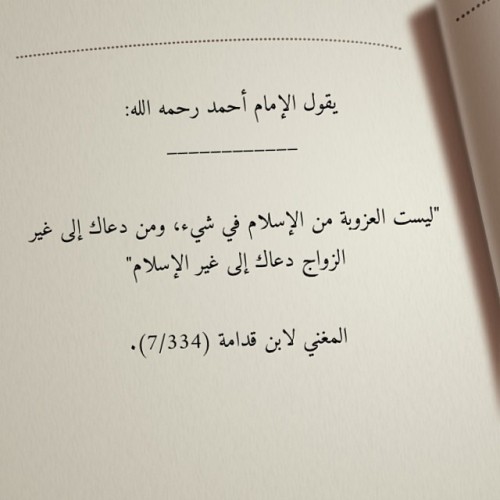 يقول الإمام أحمد رحمه الله:
____________
"ليست العزوبة من الإسلام في شيء، ومن دعاك إلى غير
الزواج دعاك إلى غير الإسلام"
المغني لابن قدامة (7/334).